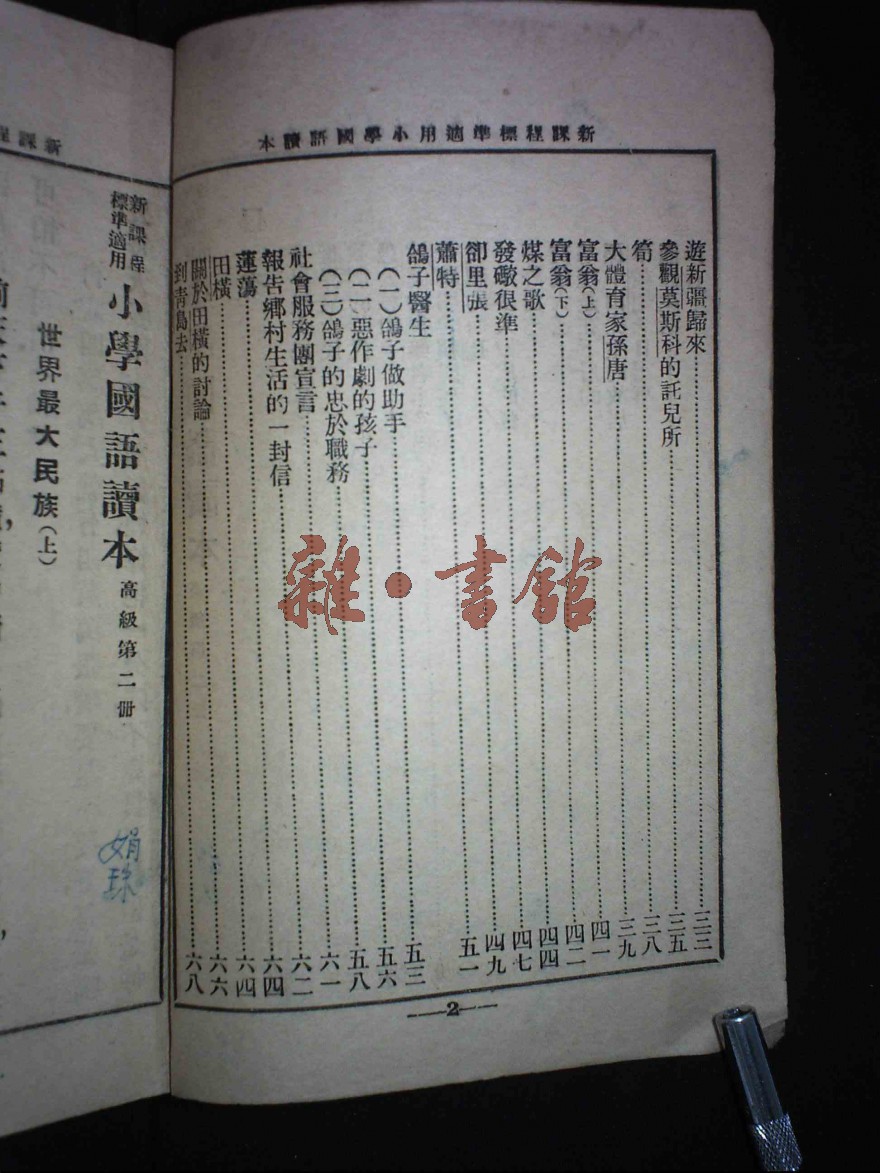 新課程標準適用小學國語讀本
遊新疆歸來……三三
參觀莫斯科的託兒所……三五
筍……三八
大體育家孫唐……三九
富翁(上)……四一
富翁(下)……四二
煤之歌……四四
發礮很準……四七
卻里張……四九
蕭特……五一
鴿子醫生
(一)鴿子做助手……五三
(二)惡作劇的孩子……五六
(三)鴿子的忠於職務……五八
社會服務團宣言……六一
報告鄉村生活的一封信……六二
蓮蕩……六四
田橫……六四
關於田橫的討論……六六
到青島去……六八
2
新課程
新課程標準適用 小學國語讀本 高級第二冊
世界最大民族(上)
娟珠
雜·書館